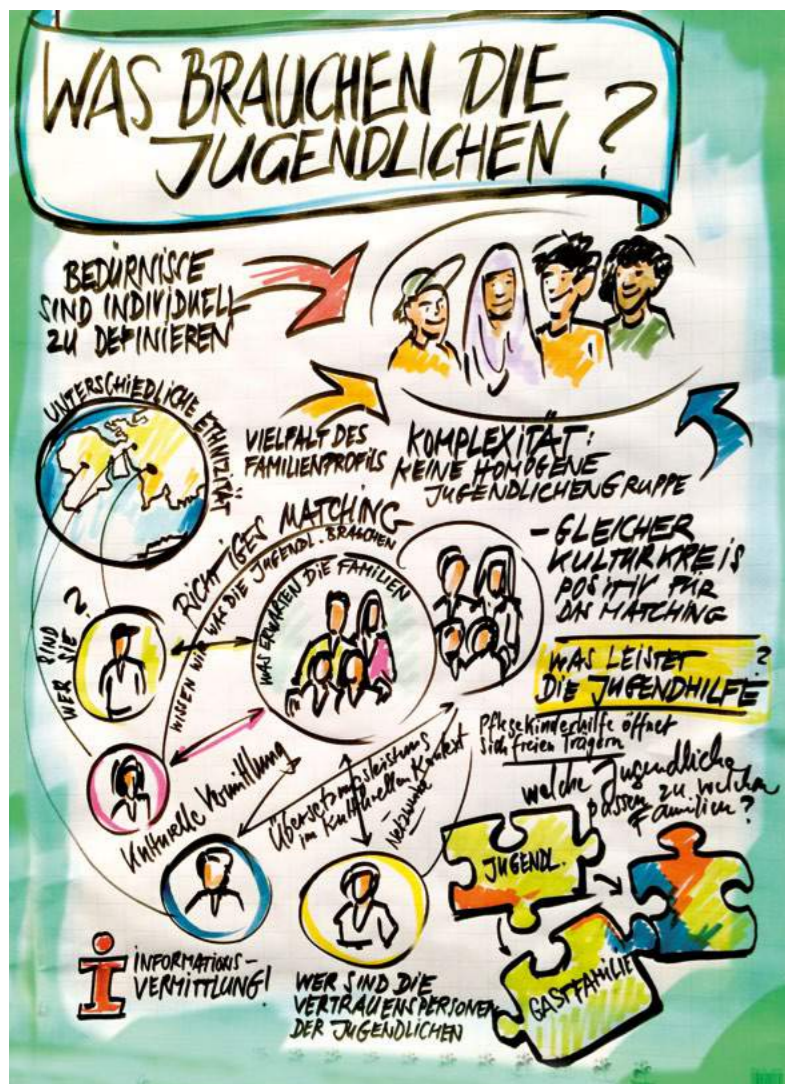 WAS BRAUCHEN DIE
JUGENDLICHEN?
BEDÜRNISSE
SIND INDIVIDUELL
ZU DEFINIEREN
UNTERSCHIEDLICHE ETHNIZITÄT
VIELFALT DES
FAMILIENPROFILS
KOMPLEXITÄT:
KEINE HOMOGENE
JUGENDLICHENGRUPPE
RICHTIGES MATCHING
WISSEN WIR WAS DIE JUGENDL. BRAUCHEN
WAS ERWARTEN DIE FAMILIEN
- GLEICHER
KULTURKREIS
POSITIV FÜR
DAS MATCHING
WER SIND SIE?
WAS LEISTET
DIE JUGENDHILFE?
Pflegekinderhilfe öffnet
sich freien Trägern
Kulturelle Vermittlung
Übersetzungsleistung
im kulturellen Kontext
Netzwerke
welche Jugendliche
passen zu welchen
Familien?
JUGENDL.
GASTFAMILIE
i INFORMATIONS-
VERMITTLUNG!
WER SIND DIE
VERTRAUENSPERSONEN
DER JUGENDLICHEN